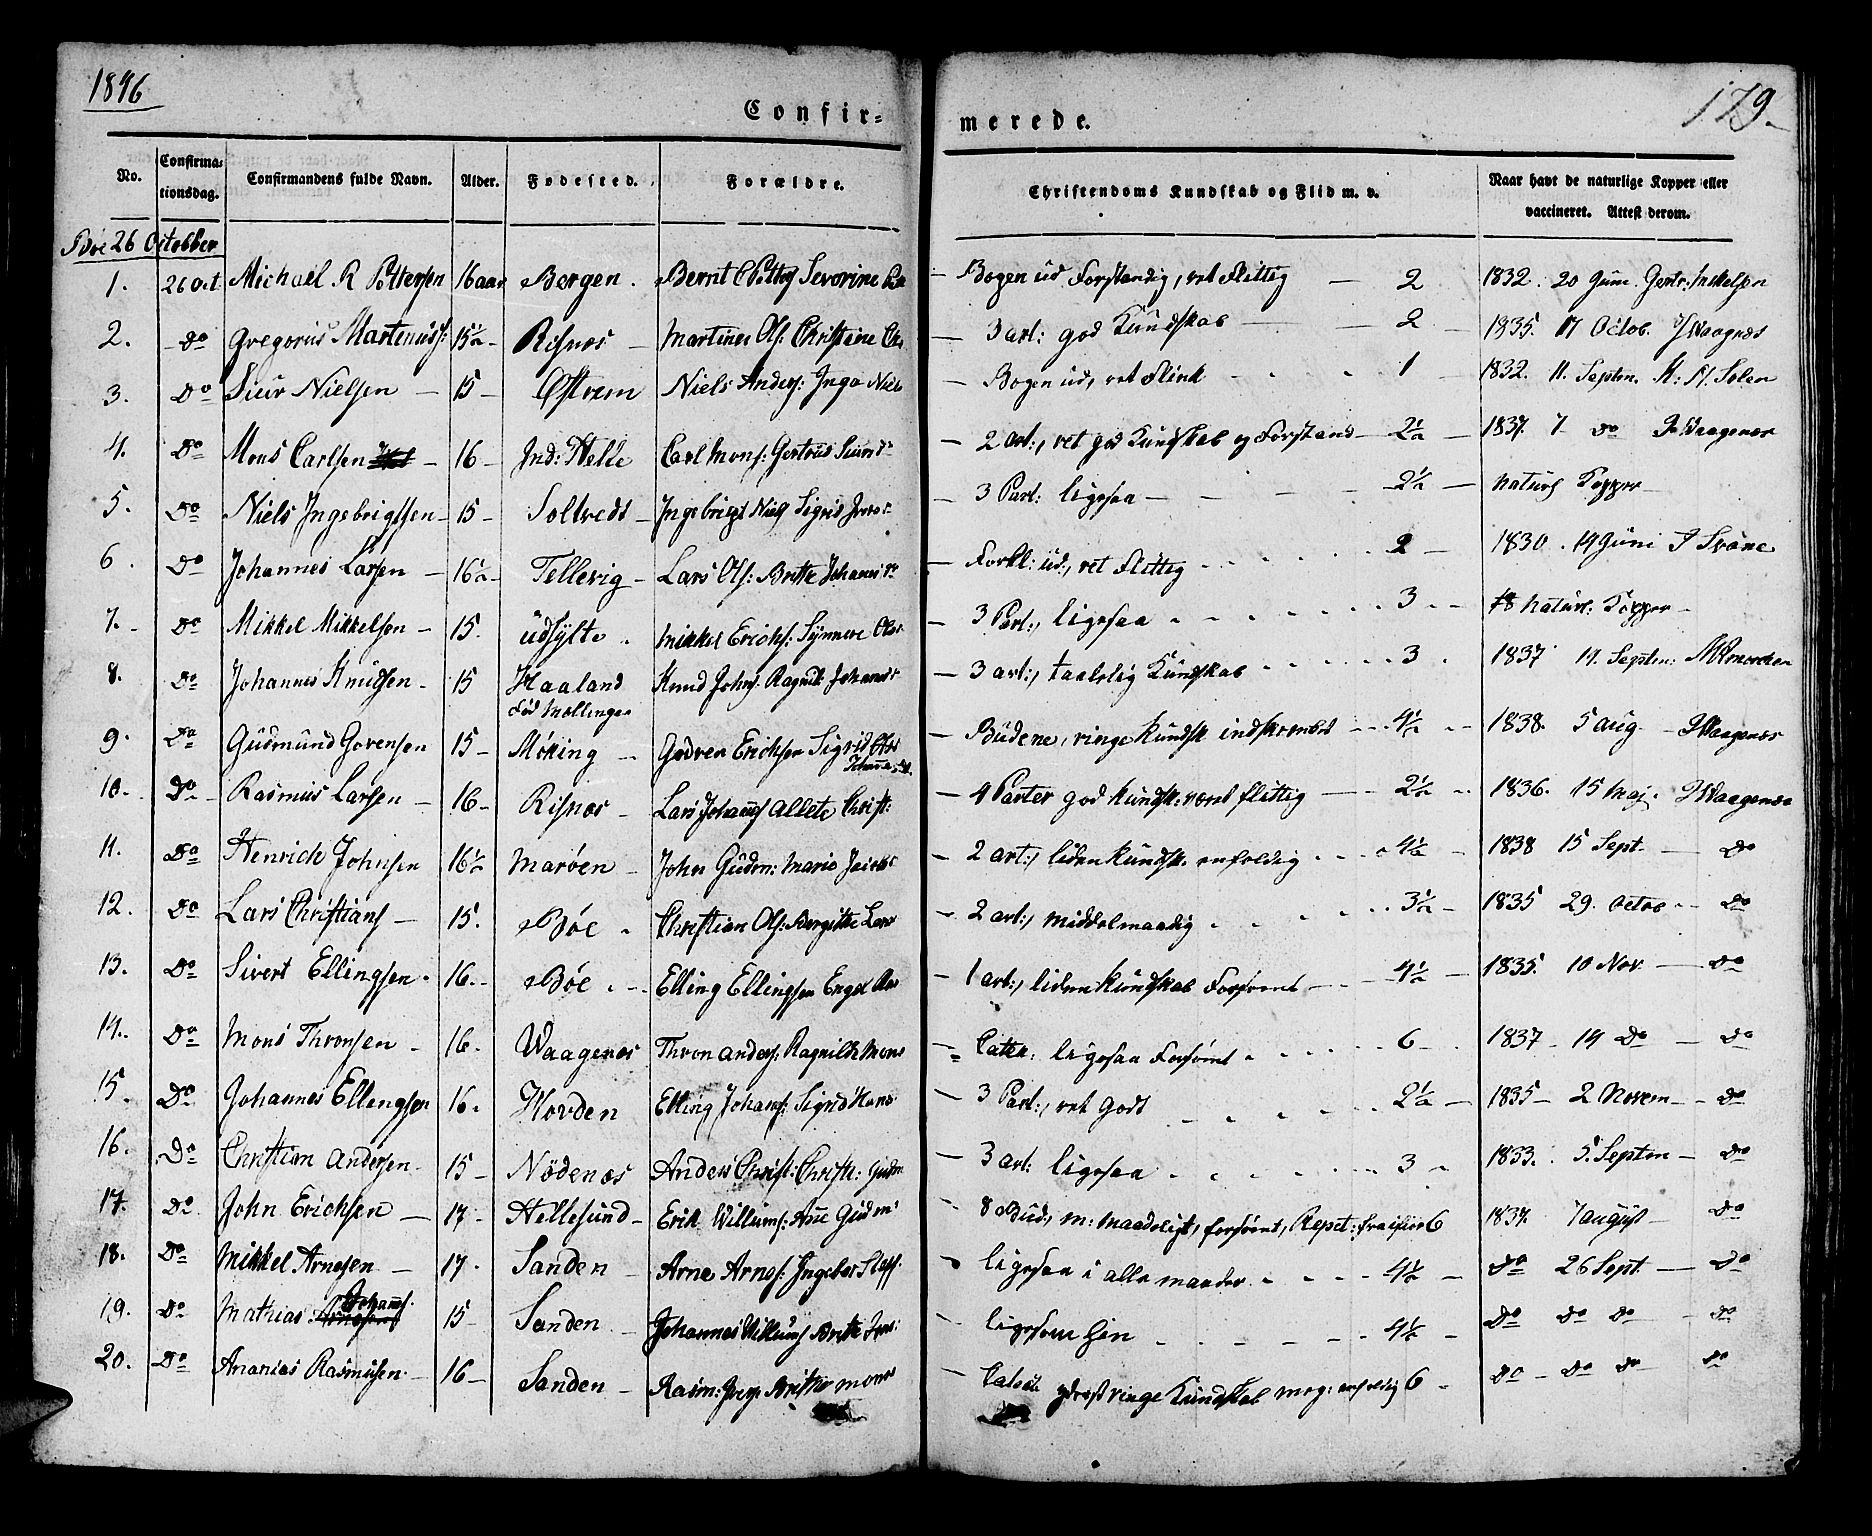 1846
Confir-
merede.
179.
No.
Confirma-
tionsdag.
Confirmandens fulde Navn.
Alder.
Fødested.
Forældre.
Christendoms Kundskab og Flid m. v.
Naar havt de naturlige Kopper eller
vaccineret. Attest derom.
Bøe 26 Octobber
1. 26 Oct Michael R Pettersen 16 aar Bergen. Bernt C Petters Severine – Bogen ud Forstandig, ret Flittig – 2 1832. 20 Juni. Gertr: Mikkelsen
2. Do Gregorius Martenuss: 15½ Risnæs – Martinus Ols: Christine – 3 art: god Kundskab – 2 1835. 17 Octob. J Waagenæs
3. Do Siur Nielsen – 15 – Østrem Niels Anders: Inga Niels – Bogen ud, ret Flink 1 1832. 11. Septm.
4. Do Mons Carlsen – 16 – Ind: Helle Carl Mons: Gertrud – 2 art:, ret god Kundskab og Forstand – 2½ – 1837. 7 do J Waagenæs
5. Do Niels Ingebrigtsen – 15 – Soltvedt – Ingebrigt Niels Sigrid – 3 Part: ligesaa – 2½ – naturl Kopper –
6. Do Johannes Larsen – 16½ – Tellevig – Lars Ols: Britte Johannes – Forkl: ud:, ret Flittig 2 – 1830. 19 Juni J Svane
7. Do Mikkel Mikkelsen – 15. Udsylte. Mikkel Erichs: Synneve Ols – 3 Part:, ligesaa 3 naturl. Kopper –
8. Do Johannes Knudsen – 15 Haaland Knud Johs: Ragnile Johannes – 3 art:, taalelig Kundskab 3. 1837 11. Septm:
Fød Mollinger
9. Do Gudmund Govensen 15 – Møking – Godven Erichsen Sigrid – Budene, ringe Kundsk indskrænket 4½ 1838. 5 aug – J Waagenæs
10. Do Rasmus Larsen – 16 – Risnæs – Lars Johans Allete Christ: – 4 Parter god Kundsk: rt flittig – 2½ 1836. 15 Maj. J Waagenæs
11. Do Henrich Johnsen 16½ Marøen – John Gudm: Marie – 2 art:, liden Kundsk. enfoldig 4½ – 1838 15 Sept. – Do
12. Do Lars Christians – 15. Bøe. Christian Ols: Bergitte Lars – 2 art:, middelmaadig 3½ – 1835 29. Octob – Do
13. Do Sivert Ellingsen. 16. – Bøe. Elling Ellingsen Engel – 1 art:, liden Kundskab Forsømt – 4½ – 1835. 10 Nov. – Do
14. Do Mons Thronsen – 16. Waagenæs Thron Anders: Ragnilde Mons – Catek: ligesaa Forsømt 6 – 1837 – 19 Do – Do
15. Do Johannes Ellingsen 16. Hovden Elling Johans: Sigrid Hans – 3 Part:, ret Godt 2½ – 1835 – 2 Novem – Do
16. Do Christian Andersen – 15 – Nödenæs Anders Christ: Christi: Gudm – 3 art: ligesaa 3 1833. 5. Septm – Do
17. Do John Erichsen – 17 – Hellesund – Erik Willums: Ane Gudm – 8 Bud, m: maadeligt, forsømt, 6 1837. 7 august – Do
18. Do Mikkel Arnesen – 17. Sanden – Arne Arnes: Ingebor Steff: ligesaa i alle maader 4½ – Do 26 Sept. – Do
19. Do Mathias Johans. 15 – Sanden – Johannes Willums Britte ligesom hin 4½ – Do Do Do – Do
20. Do Ananias Rasmusen – 16 – Sanden – Rasm: Britha Mons – yderst ringe Kundskab meg: enfoldig 6 – Do – Do Do – Do